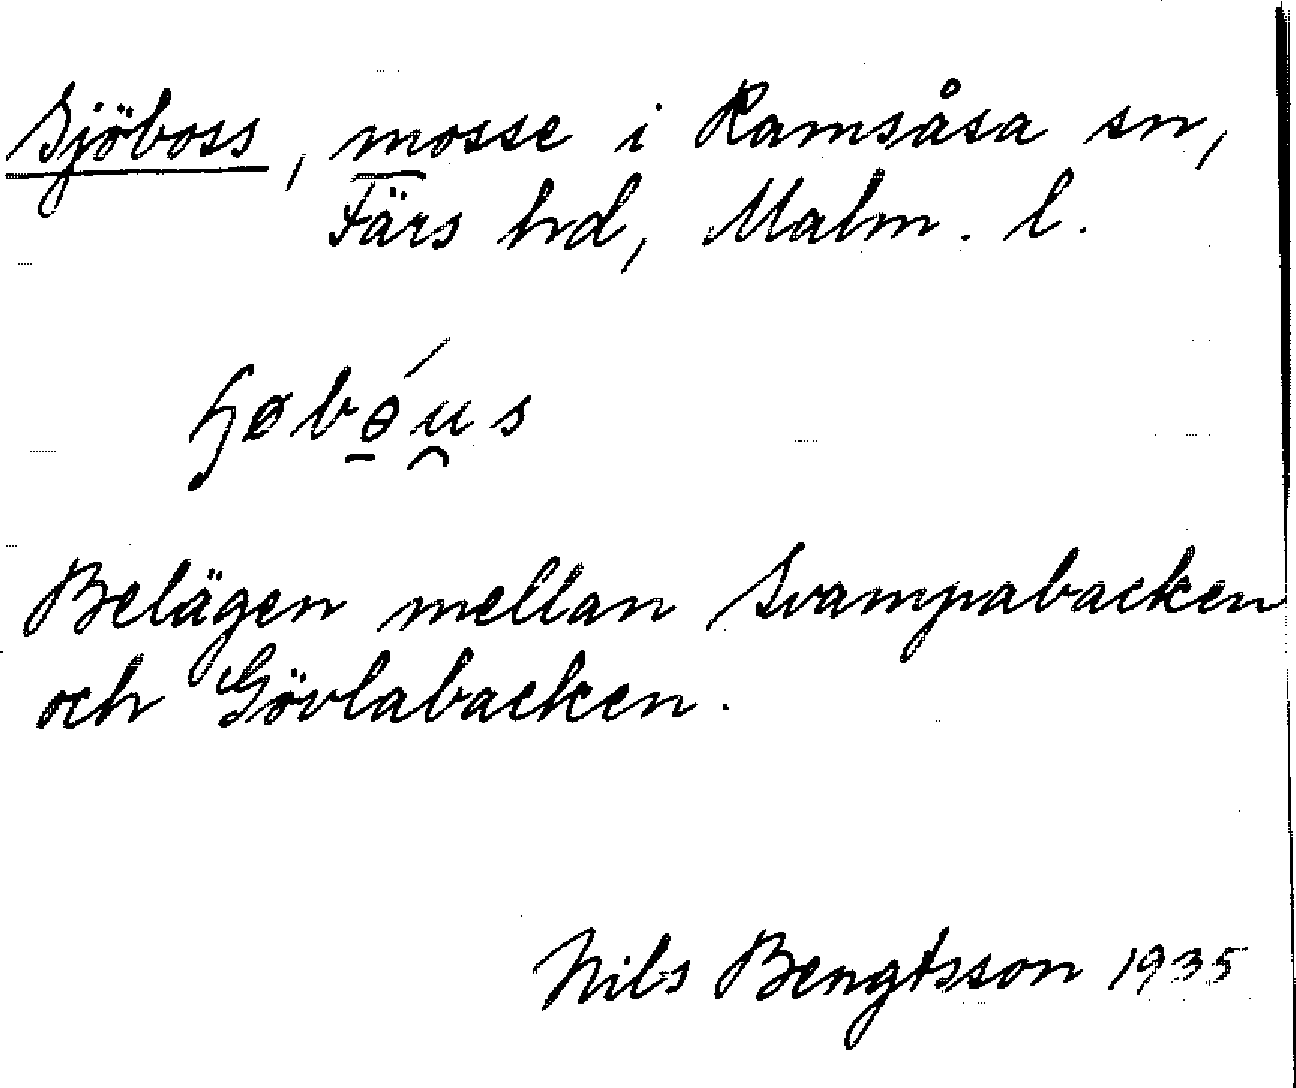 Sjöboss, mosse i Ramsåsa sn,
Färs hd, Malm. l.
Belägen mellan Svampabacken
och Gövlabacken.
Nils Bengtsson 1935